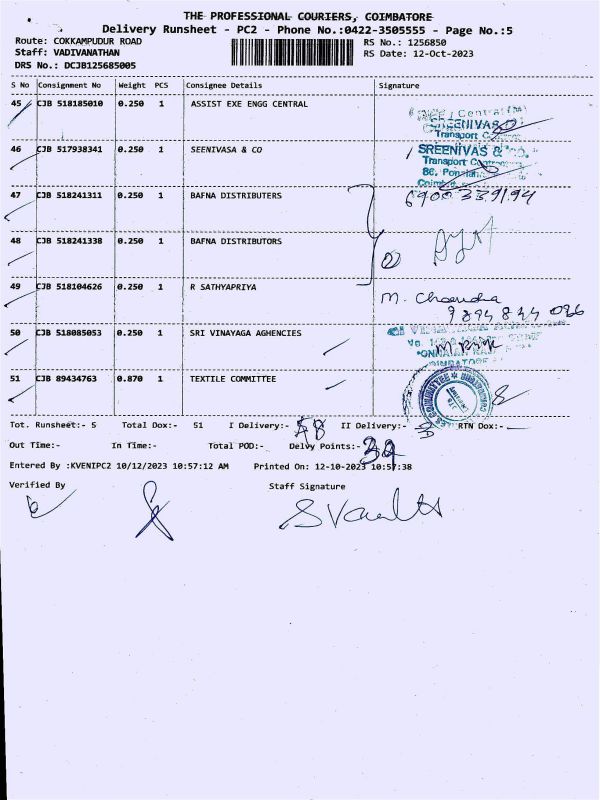 THE PROFESSIONAL COURIERS, COIMBATORE
Delivery Runsheet - PC2 - Phone No.:0422-3505555 - Page No.:5
Route: COKKAMPUDUR ROAD RS No.: 1256850
Staff: VADIVANATHAN RS Date: 12-Oct-2023
DRS No.: DCJB125685005
S No Consignment No Weight PCS Consignee Details Signature
45 CJB 518185010 0.250 1 ASSIST EXE ENGG CENTRAL
SREENIVAS
Transport
46 CJB 517938341 0.250 1 SEENIVASA & CO SREENIVAS &
Transport
86,
47 CJB 518241311 0.250 1 BAFNA DISTRIBUTERS
48 CJB 518241338 0.250 1 BAFNA DISTRIBUTORS
49 CJB 518104626 0.250 1 R SATHYAPRIYA M. Chandra
50 CJB 518085053 0.250 1 SRI VINAYAGA AGHENCIES
51 CJB 89434763 0.870 1 TEXTILE COMMITTEE
Tot. Runsheet:- 5 Total Dox:- 51 I Delivery:- II Delivery:- RTN Dox:-
Out Time:- In Time:- Total POD:- Delvy Points:-
Entered By :KVENIPC2 10/12/2023 10:57:12 AM Printed On: 12-10-2023 10:57:38
Verified By Staff Signature